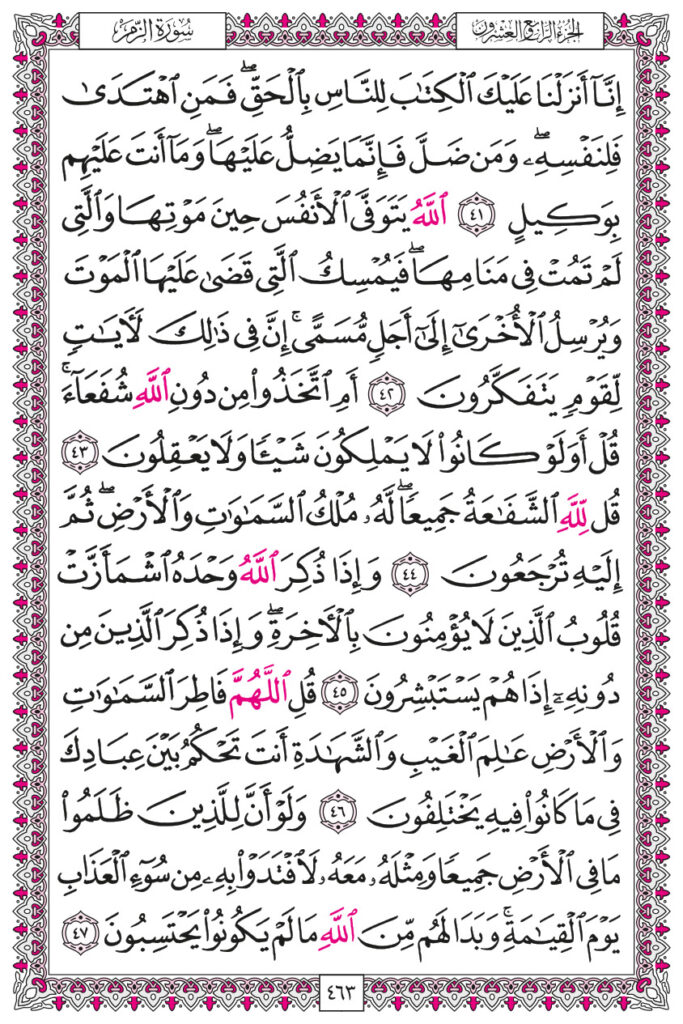 الجزء الرابع والعشرون
سورة الزمر
إِنَّآ أَنزَلْنَا عَلَيْكَ ٱلْكِتَٰبَ لِلنَّاسِ بِٱلْحَقِّ ۖ فَمَنِ ٱهْتَدَىٰ
فَلِنَفْسِهِۦ ۖ وَمَن ضَلَّ فَإِنَّمَا يَضِلُّ عَلَيْهَا ۖ وَمَآ أَنتَ عَلَيْهِم
بِوَكِيلٍ ٤١ ٱللَّهُ يَتَوَفَّى ٱلْأَنفُسَ حِينَ مَوْتِهَا وَٱلَّتِى
لَمْ تَمُتْ فِى مَنَامِهَا ۖ فَيُمْسِكُ ٱلَّتِى قَضَىٰ عَلَيْهَا ٱلْمَوْتَ
وَيُرْسِلُ ٱلْأُخْرَىٰٓ إِلَىٰٓ أَجَلٍ مُّسَمًّى ۚ إِنَّ فِى ذَٰلِكَ لَـَٔايَٰتٍ
لِّقَوْمٍ يَتَفَكَّرُونَ ٤٢ أَمِ ٱتَّخَذُوا۟ مِن دُونِ ٱللَّهِ شُفَعَآءَ ۚ
قُلْ أَوَلَوْ كَانُوا۟ لَا يَمْلِكُونَ شَيْـًٔا وَلَا يَعْقِلُونَ ٤٣
قُل لِّلَّهِ ٱلشَّفَٰعَةُ جَمِيعًا ۖ لَّهُۥ مُلْكُ ٱلسَّمَٰوَٰتِ وَٱلْأَرْضِ ۖ ثُمَّ
إِلَيْهِ تُرْجَعُونَ ٤٤ وَإِذَا ذُكِرَ ٱللَّهُ وَحْدَهُ ٱشْمَأَزَّتْ
قُلُوبُ ٱلَّذِينَ لَا يُؤْمِنُونَ بِٱلْـَٔاخِرَةِ ۖ وَإِذَا ذُكِرَ ٱلَّذِينَ مِن
دُونِهِۦٓ إِذَا هُمْ يَسْتَبْشِرُونَ ٤٥ قُلِ ٱللَّهُمَّ فَاطِرَ ٱلسَّمَٰوَٰتِ
وَٱلْأَرْضِ عَٰلِمَ ٱلْغَيْبِ وَٱلشَّهَٰدَةِ أَنتَ تَحْكُمُ بَيْنَ عِبَادِكَ
فِى مَا كَانُوا۟ فِيهِ يَخْتَلِفُونَ ٤٦ وَلَوْ أَنَّ لِلَّذِينَ ظَلَمُوا۟
مَا فِى ٱلْأَرْضِ جَمِيعًا وَمِثْلَهُۥ مَعَهُۥ لَٱفْتَدَوْا۟ بِهِۦ مِن سُوٓءِ ٱلْعَذَابِ
يَوْمَ ٱلْقِيَٰمَةِ ۚ وَبَدَا لَهُم مِّنَ ٱللَّهِ مَا لَمْ يَكُونُوا۟ يَحْتَسِبُونَ ٤٧
٤٦٣